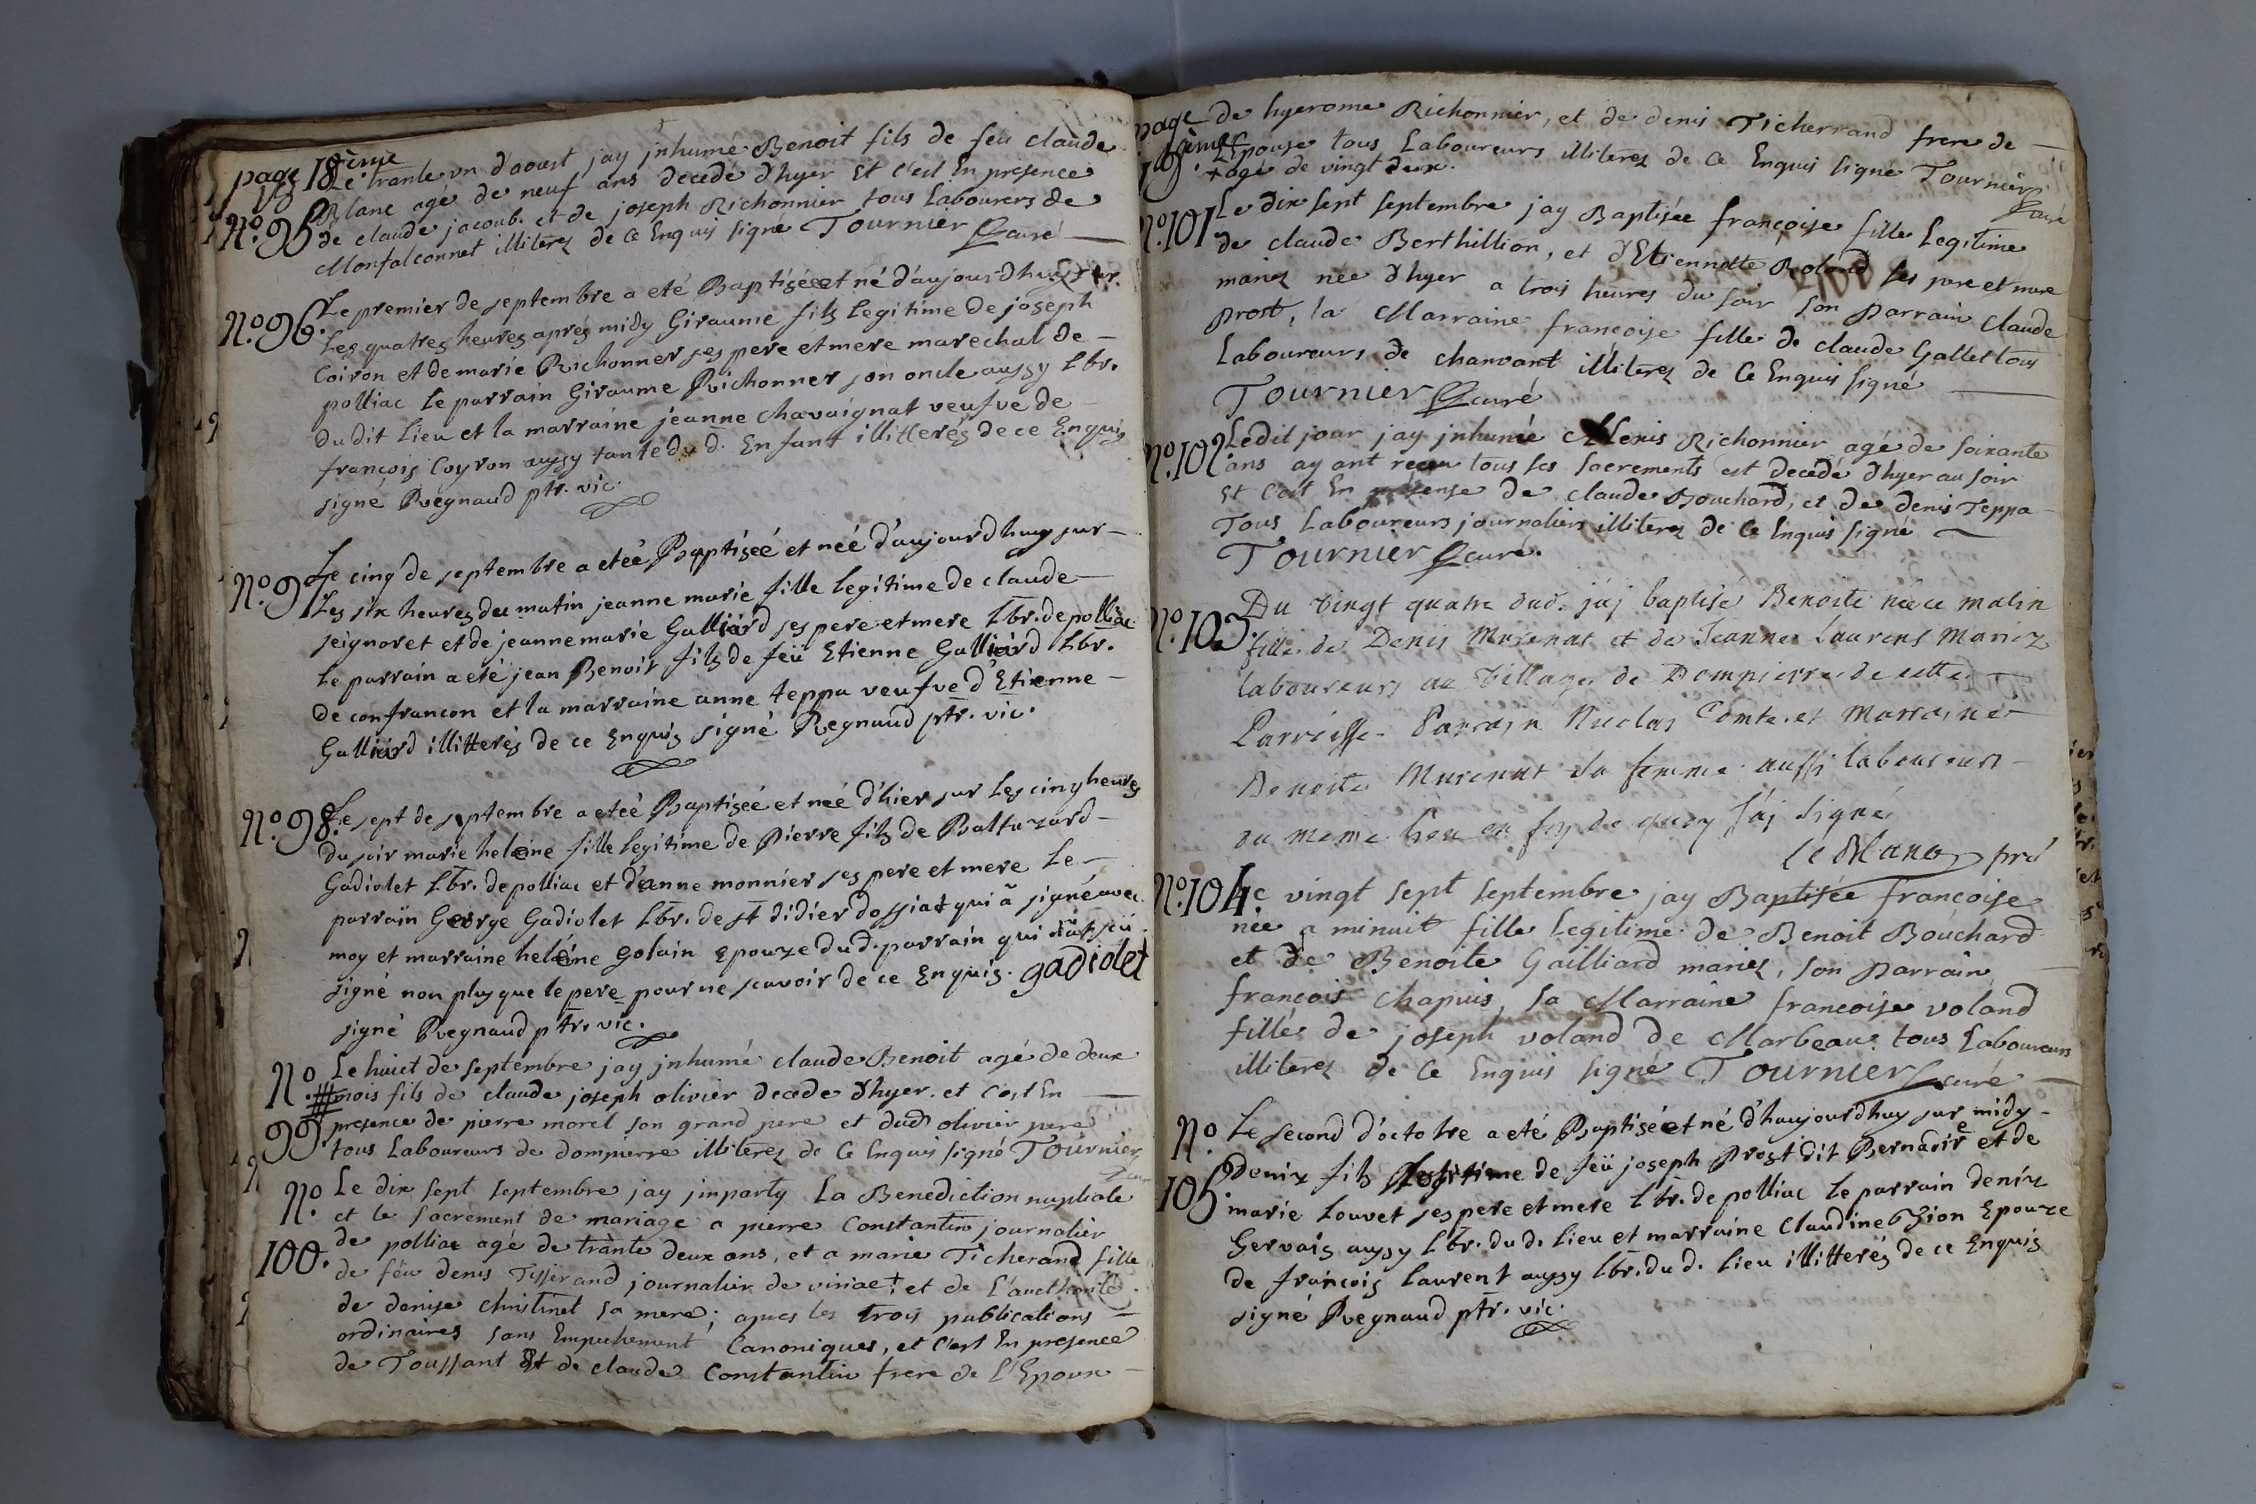 page 18ème
Le trante un d'aoust jay jnhumé Benoit fils de feu claude
Blanc agé de neuf ans decedé dhyer Et c'est En presence
N.o 95 de claude jacoub. et de joseph Richonnier tous Labourers de
Monfalconnet illiterez de ce Enquis signé Tournier curé
N.o 96. Le premier de septembre a eté Baptiséeet né d'aujourdhuy sur.
Les quatres heures aprés midy Giraume fils Legitime de joseph
Coiron et de marie Richonner ses pere et mere marechal de
polliac Le parrain Giraume Richonner son oncle aussy Lbr.
du dit Lieu et la marraine jeanne chavaignat veufve de
françois Coyron aussy tante du d. Enfant illitterés de ce Enquis
signé Regnaud ptr. vic.
N.o 97. Le cinq de septembre a eteé Baptiseé et neé d'aujourdhuy sur
Les six heures du matin jeanne marie fille legitime de claude
seignoret et de jeanne marie Galliard ses pere et mere Lbr. de polliac
Le parrain a eté jean Benoit fils de feü Etienne Galliard Lbr.
de confrancon et la marraine anne teppa veufve d'Etienne
Galliard illitterés de ce Enquis signé Regnaud ptr. vic.
N.o 98. Le sept de septembre a eteé Baptiseé et neé d'hier sur Les cinq heures
du soir marie helene fille legitime de Pierre fils de Baltazard
Gadiolet Lbr. de polliac et d'anne monnier ses pere et mere Le
parrain George Gadiolet Lbr. de st didier dossiat qui a signé avec
moy et marraine heléne Golain Epouze du d. parrain qui
signé non plus que le pere pour ne scavoir de ce Enquis. gadiolet
signé Regnaud ptr. vic.
N.o Le huict de septembre jay jnhumé claude Benoit agé de deux
# mois fils de claude joseph olivier decede dhyer. et c'est En
99. presence de pierre morel son grand pere et dud olivier pere
tous Laboureurs de dompierre illiterez de ce Enquis signé Tournier
curé
N.o Le dix sept septembre jay jmparty La Benediction nuptiale
et le sacrement de mariage a pierre Constantin journalier
100. de polliac agé de trante deux ans, et a marie Ticherand fille
de feu denis Tisserand journalier de viriac + et de L'aucthorité
de denise christinet sa mere; apres les trois publications
ordinaires sans Empechement Canoniques, et c'est En presence
de Toussant Et de claude Constantin frere de l'Epoux
page de hyerome Richonnier, et de denis Ticherrand frere de
19ème L'Epouse tous Laboureurs illiterez de ce Enquis signé Tournier
+ agé de vingt deux. curé
N.o 101 Le dix sept septembre jay Baptisée françoise fille Legitime
de claude Berthillion, et d'Etiennette Roland ses pere et mere
mariez née dhyer a trois heures du soir son parrain claude
prost, la Marraine francoise fille de claude Gallet tous
Laboureurs de chanvant illiterez de ce Enquis signé
Tournier curé
N.o 102 Ledit jour jay jnhumé Richonnier agé de soixante
ans ayant receu tous ses sacrements est decedé dhyer au soir
Et c'est En presense de claude Bouchard, et de denis Teppa
Tous Laboureurs journaliers illiterez de ce Enquis signé
Tournier curé.
N.o 103. Du vingt quatre dud. jáj baptisé Benoite née ce matin
fille de Denis Murenat et de Jeanne Laurent Mariez
laboureurs au village de Dompierre de cette
Parroisse. Parrain Nuclas Comte. et Marraine
Benoite Murenat sa femme aussi laboureurs
du meme lieu en foy de quoy j'áj signé
Le Blanc pré
N.o 104 Le vingt sept septembre jay Baptisée francoise
née a minuit fille legitime de Benoit Bouchard
et de Benoite Gailliard mariez, son parrain
françois chapuis, sa Marraine francoise voland
fille de joseph voland de Marbeau tous Laboureurs
illiterez de ce Enquis signé Tournier curé
N.o Le second d'octobre a eté Baptiséet né d'haujourdhuy sur midy
105 Denix fils Legitime de feü joseph Prost dit Bernard et de
marie Louvet ses pere et mere Lbr. de polliac Le parrain denix
Gervais aussy Lbr. du d. Lieu et marraine Claudine Epouze
de françois Laurent aussy Lbr. du d. Lieu illitterés de ce Enquis
signé Regnaud ptr. vic.